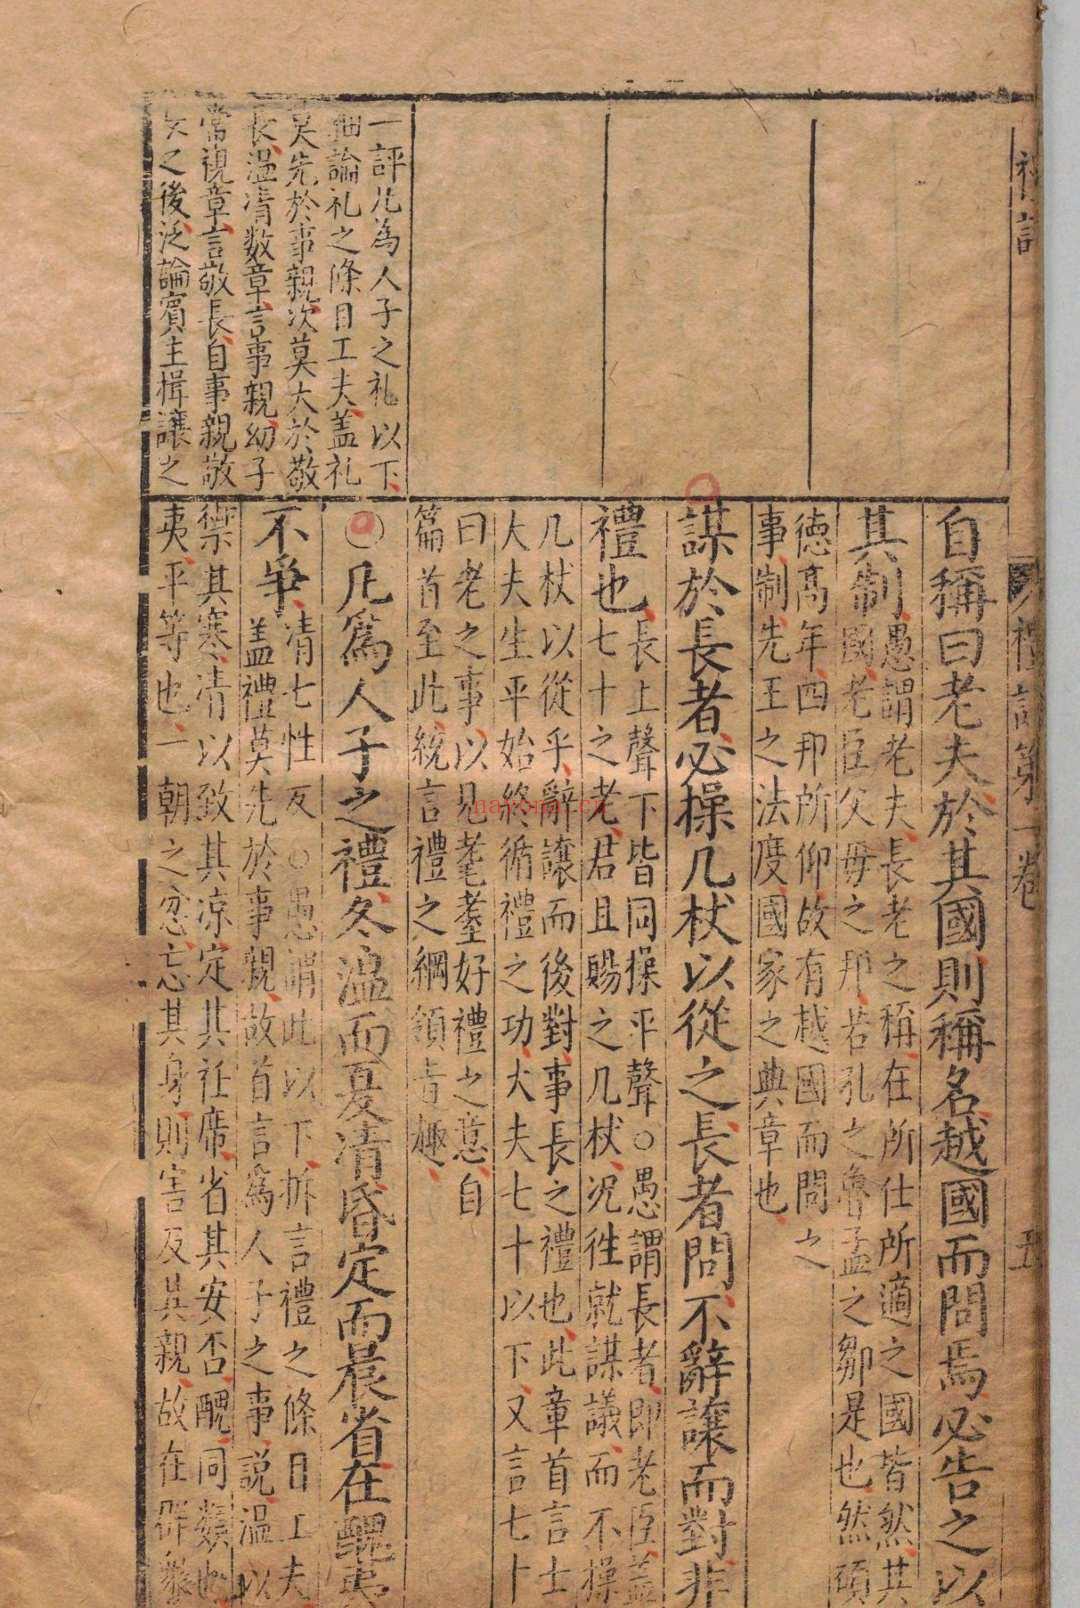 自稱曰老夫於其國則稱名越國而問焉必告之以
其制
愚謂老夫長老之稱在所仕所適之國皆然其
國老臣父母之邦若孔之魯孟之鄒是也然
德高年四邦所仰故有越國而問之
事制先王之法度國家之典章也
謀於長者必操几杖以從之長者問不辭讓而對非
禮也
長上聲下皆同操平聲○愚謂長者即老臣蓋
七十之老君且賜之几杖况徃就謀議而不操
几杖以從乎辭讓而後對事長之禮也此章首言士
大夫生平始終循禮之功大夫七十以下又言七十
曰老之事以見耄耋好禮之意自
篇首至此統言禮之綱領旨趣
○凡爲人子之禮冬溫而夏凊昏定而晨省在醜夷
不爭
凊七性反○愚謂此以下拆言禮之條目工夫
蓋禮莫先於事親故首言爲人子之事說溫以
禦其寒凊以致其凉定其衽席省其安否醜同類也
夷平等也一朝之忿亡其身則害及其親故在群衆
一評凡為人子之礼以下
細論礼之條目工夫蓋礼
莫先於事親次莫大於敬
長溫凊数章言事親幼子
常視章言敬長自事親敬
長之後泛論賓主揖讓之
禮記第一卷
五
nayona.cn